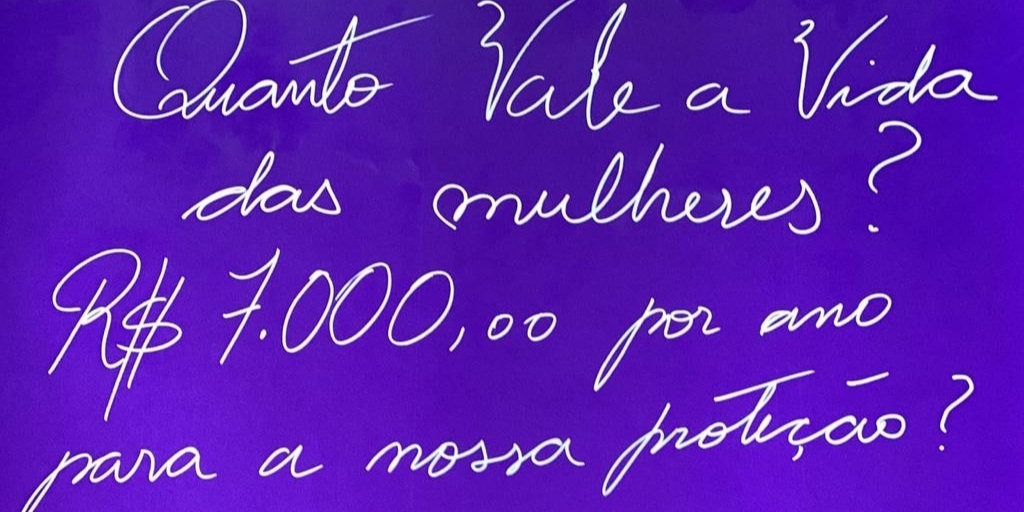 Quanto Vale a Vida
das mulheres?
R$ 7.000,00 por ano
para a nossa proteção?